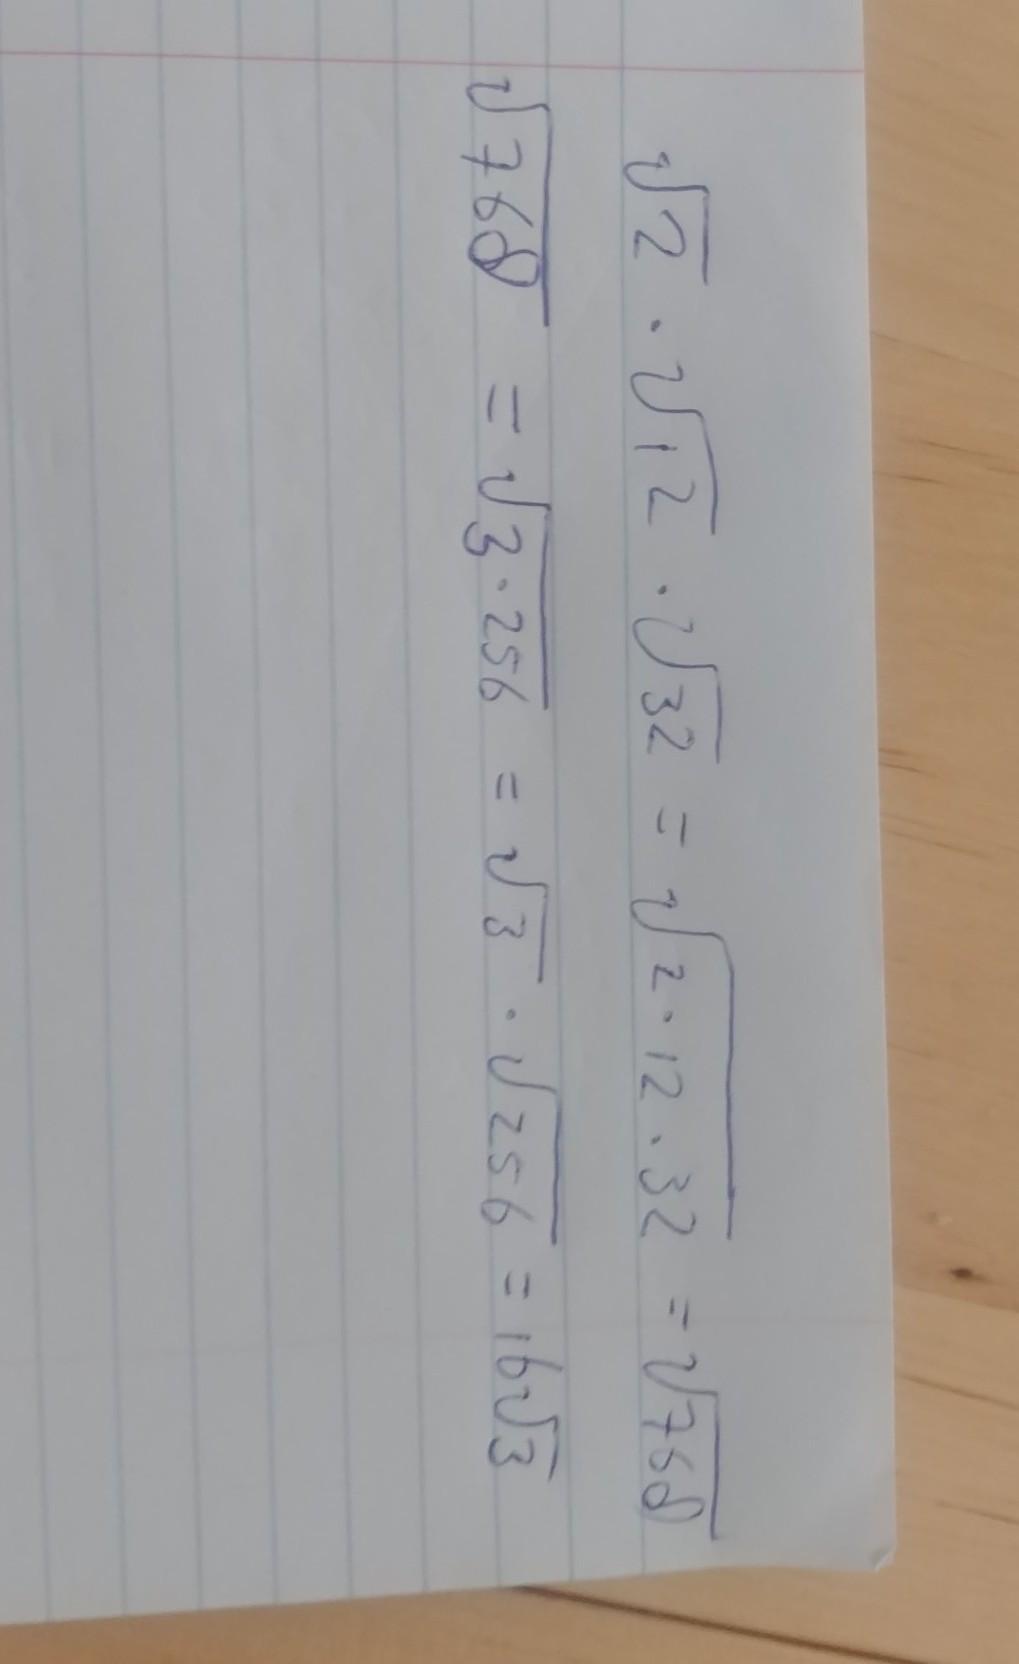 √2 · √12 · √32 = √2·12·32 = √768
√768 = √3·256 = √3 · √256 = 16√3